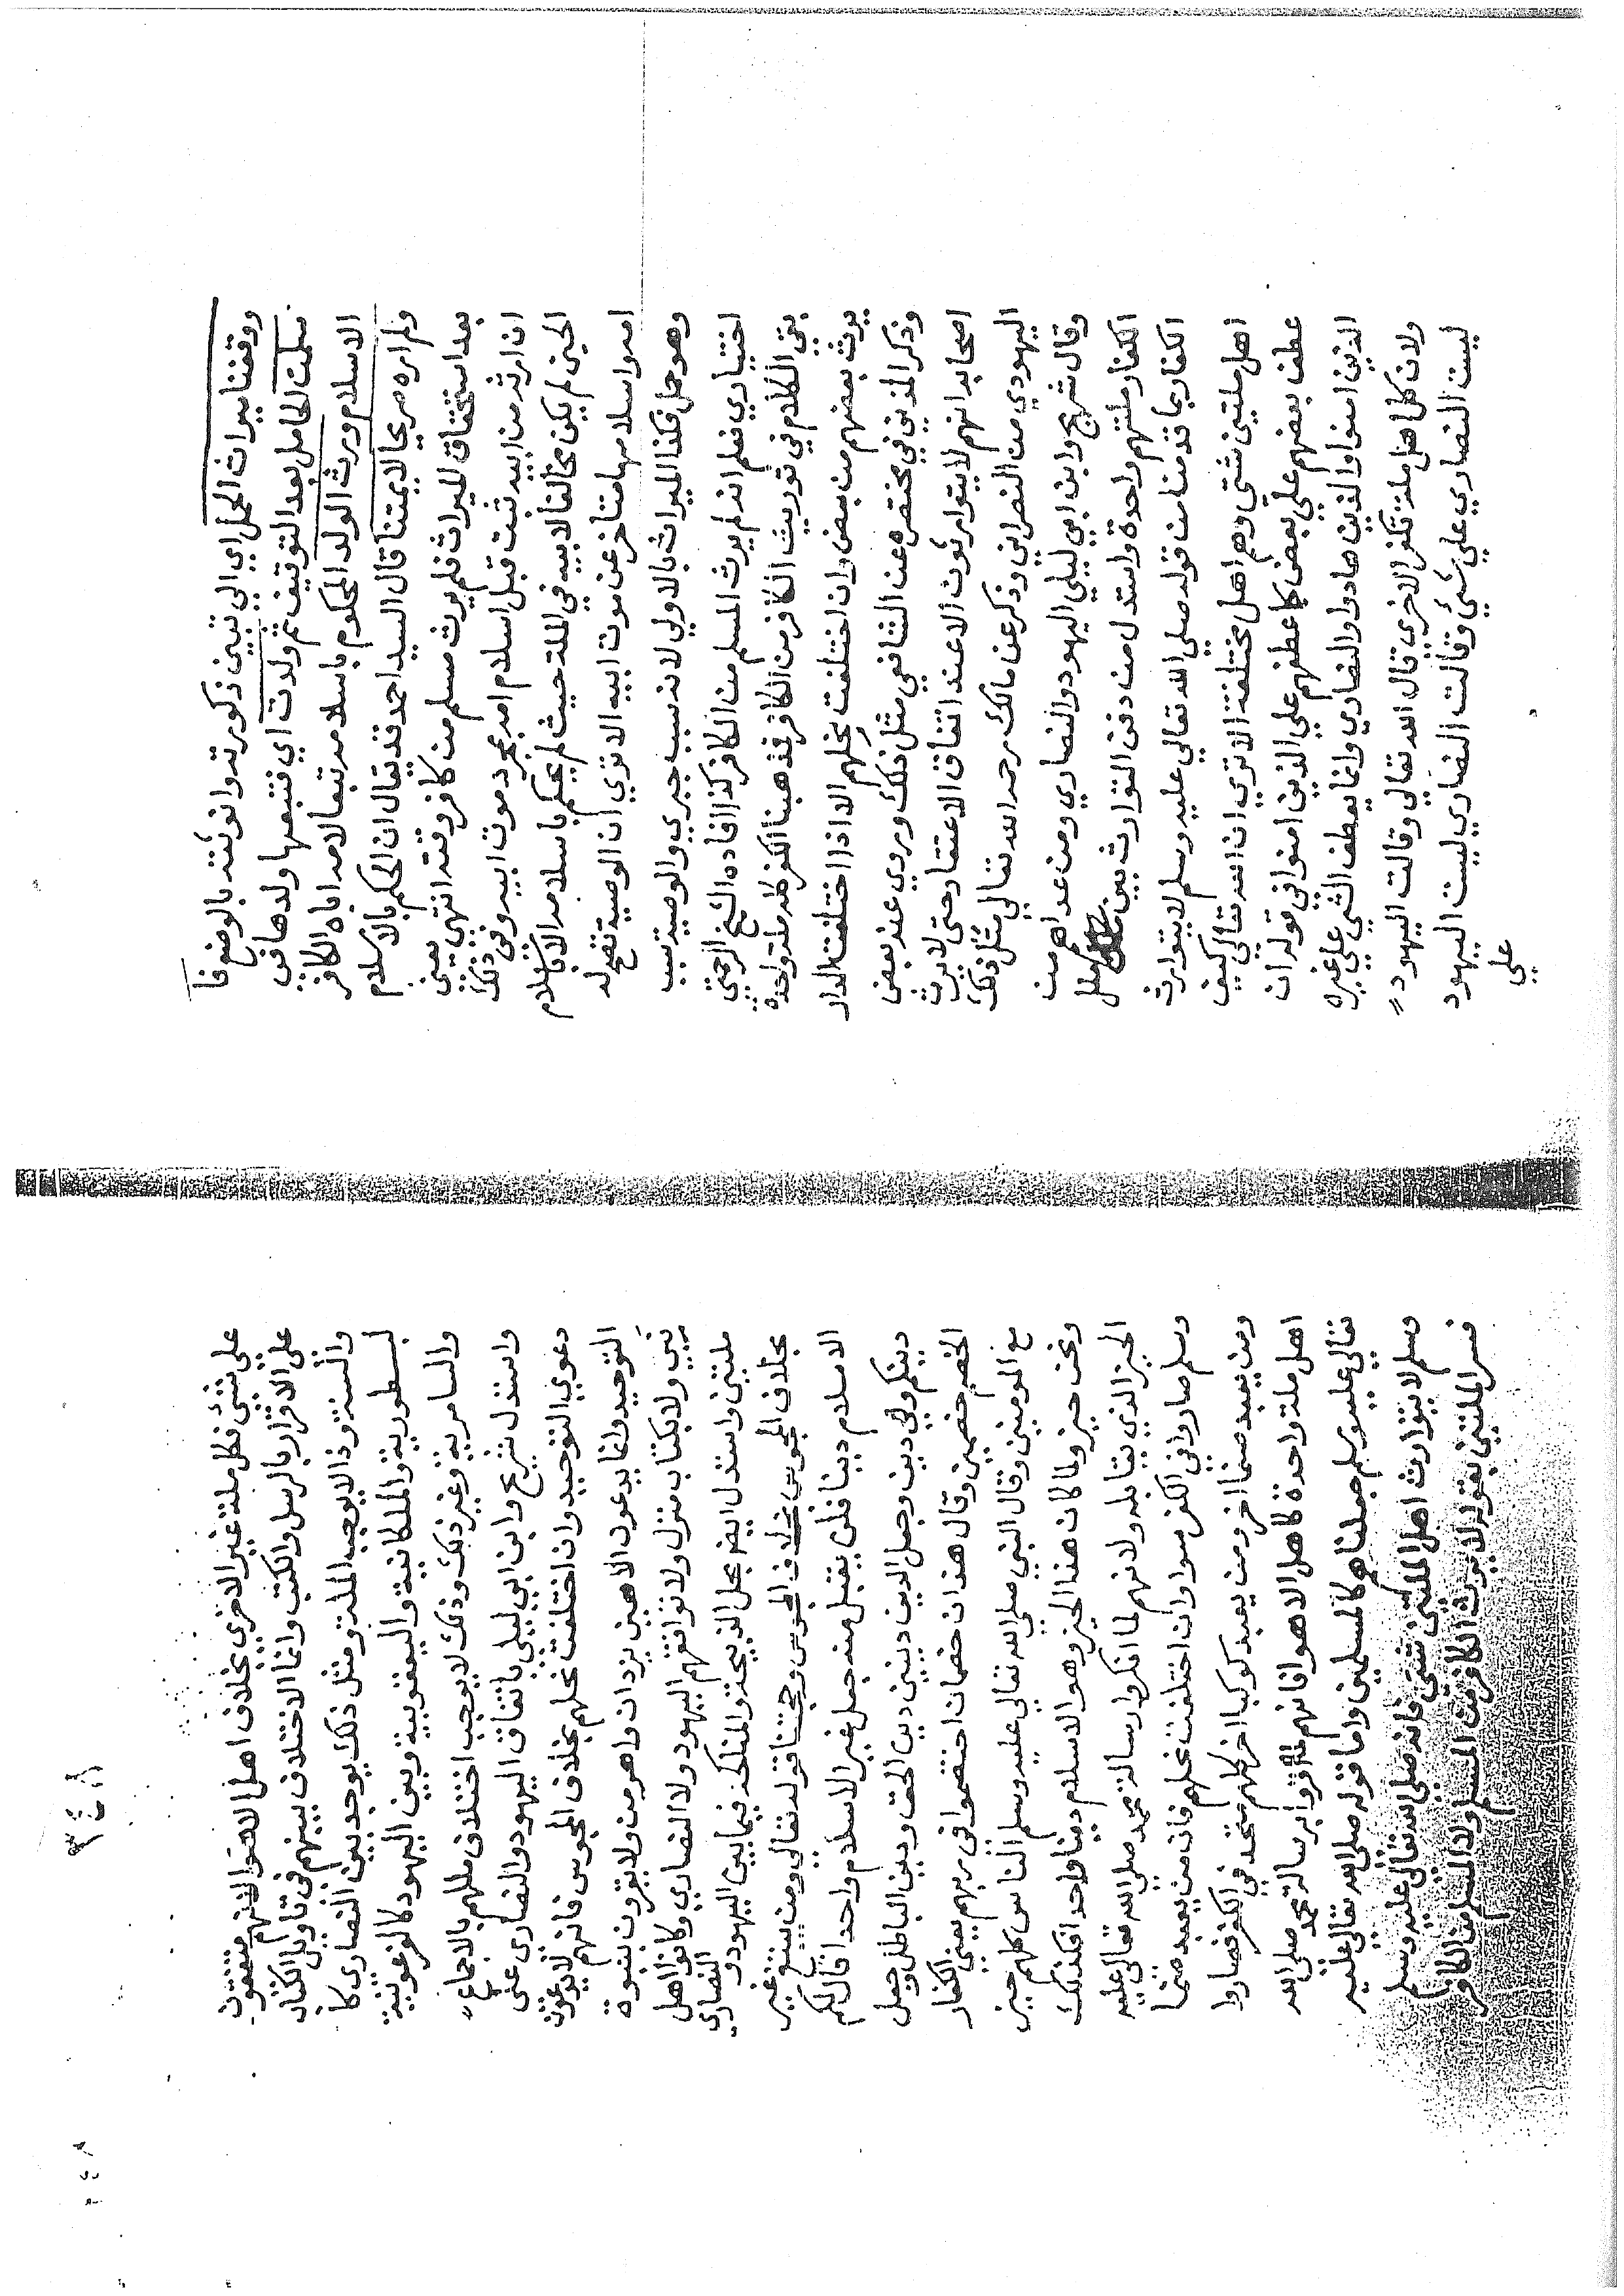 ووقفنا ميراث الحمل اي الي تبين ذكورته وانوثته بالوضع فا
سلمت الحامل بعد التوقيف ثم ولدت اي فتبعها ولدها في
الاسلام وورث الولد المحكوم باسلامه تبعا لامه اباه الكافر
ولم اره صريحا لايمتنا قال السيد احمد قد يقال ان الحكم بالاسلام
بعد استحقاق الميراث فلم يرث مسلم من كافر وقته انتهي يعني
ان ارثه من ابيه ثبت قبل اسلام امه بمجرد موت ابيه وفي ذلك
الحين لم يكن مخالفا لابيه في الملة حيث لم يحكم باسلامه الا باسلام
امه واسلامها متاخر عن موت ابيه الا تري ان الوصية تصح له
وهو حمل فكذا الميراث بالاولي لانه سبب جبري والوصية سبب
اختياري فعلم انه لم يرث المسلم من الكافر كذا افاده الشيخ الرحمتي
بقي الكلام في توريث الكافر من الكافر فمذهبنا الكفر كله ملة واحدة
يرث بعضهم من بعض وان اختلفت نحلهم الا اذا اختلفت الدار
وذكر المزني في مختصره عن الشافعي مثل ذلك وروي عنه بعض
اصحابه انهم لا يتوارثون الا عند اتفاق الاعتقاد حتي لا يرث
اليهودي من النصراني وذكر عن مالك رحمه الله تعالي مثل ذلك
وقال شريح وابن ابي ليلي اليهود والنصاري ومن عداهم من
الكفار ملتهم واحدة واستدل من دفن التوارث بين ملل
الكفار بما قدمنا من قوله صلي الله تعالي عليه وسلم لا يتوارث
اهل ملتين شتي وهم اهل مختلفة الا تري ان الله تعالي كيف
عطف بعضهم علي بعض كما عطفهم علي الذين امنوا في قوله ان
الذين امنوا والذين هادوا والنصاري وانما يعطف الشي علي غيره
ولان كل اهل ملة تكفر الاخري قال الله تعالي وقالت اليهود
ليست النصاري علي شي وقالت النصاري ليست اليهود
علي
٣٤٨
علي شي فكل ملة غير الاخري بخلاف اهل الاهوا لانهم متفقون
علي الاقرار بالرسل والكتب وانما الاختلاف بينهم في تاويل الكتاب
والسنة وذا لا يوجب الملة ومثل ذلك يوجد بين النصاري كا
لنسطورية والملكانية واليعقوبية وبين اليهود كالفرعونية
والسامرية وغير ذلك وذلك لا يوجب اختلاف مللهم بالاجماع
واستدل شريح وابن ابي ليلي باتفاق اليهود والنصاري علي
دعوي التوحيد وان اختلفت نحلهم بخلاف المجوس فانهم لا يدعون
التوحيد وانما يدعون الاهين يزدان واهرمن ولا يقرون بنبوة
نبي ولا بكتاب منزل ولا توافقهم اليهود ولا النصاري فكانوا اهل
ملتين واستدل ايضا بحل الذبيحة والمناكحة فيما بين اليهود والنصاري
بخلاف المجوس بخلاف المجوس وحجتنا قوله تعالي ومن يبتغ غير
الاسلام دينا فلن يقبل منه جعل غير الاسلام واحدا قال لكم
دينكم ولي دين وجعل الدين دينين دين الحق ودين الباطل وجعل
الخصم خصمين وقال هذان خصمان اختصموا في ربهم يعني الكفار
مع المومنين وقال النبي صلي الله تعالي عليه وسلم الناس كلهم حيز
ونحن حيز ولما كان هذا الحيز وهو الاسلام دينا واحدا فكذلك
الحيز الذي يقابله ولانهم لما انكروا رسالة محمد صلي الله تعالي عليه
وسلم صاروا في الكفر سوا وان اختلفت نحلهم فان من يعبد صنما
ومن يعبد صنما اخر ومن يعبد كوكبا اخر كلهم متحد في الكفر فصاروا
اهل ملة واحدة كاهل الاهوا فانهم لما اقروا برسالة محمد صلي الله
تعالي عليه وسلم جعلناهم كالمسلمين واما قوله صلي الله تعالي عليه
وسلم لا يتوارث اهل الملتين شتي فانه صلي الله تعالي عليه وسلم
فسر الملتين بقوله لا يرث الكافر من المسلم ولا المسلم من الكافر